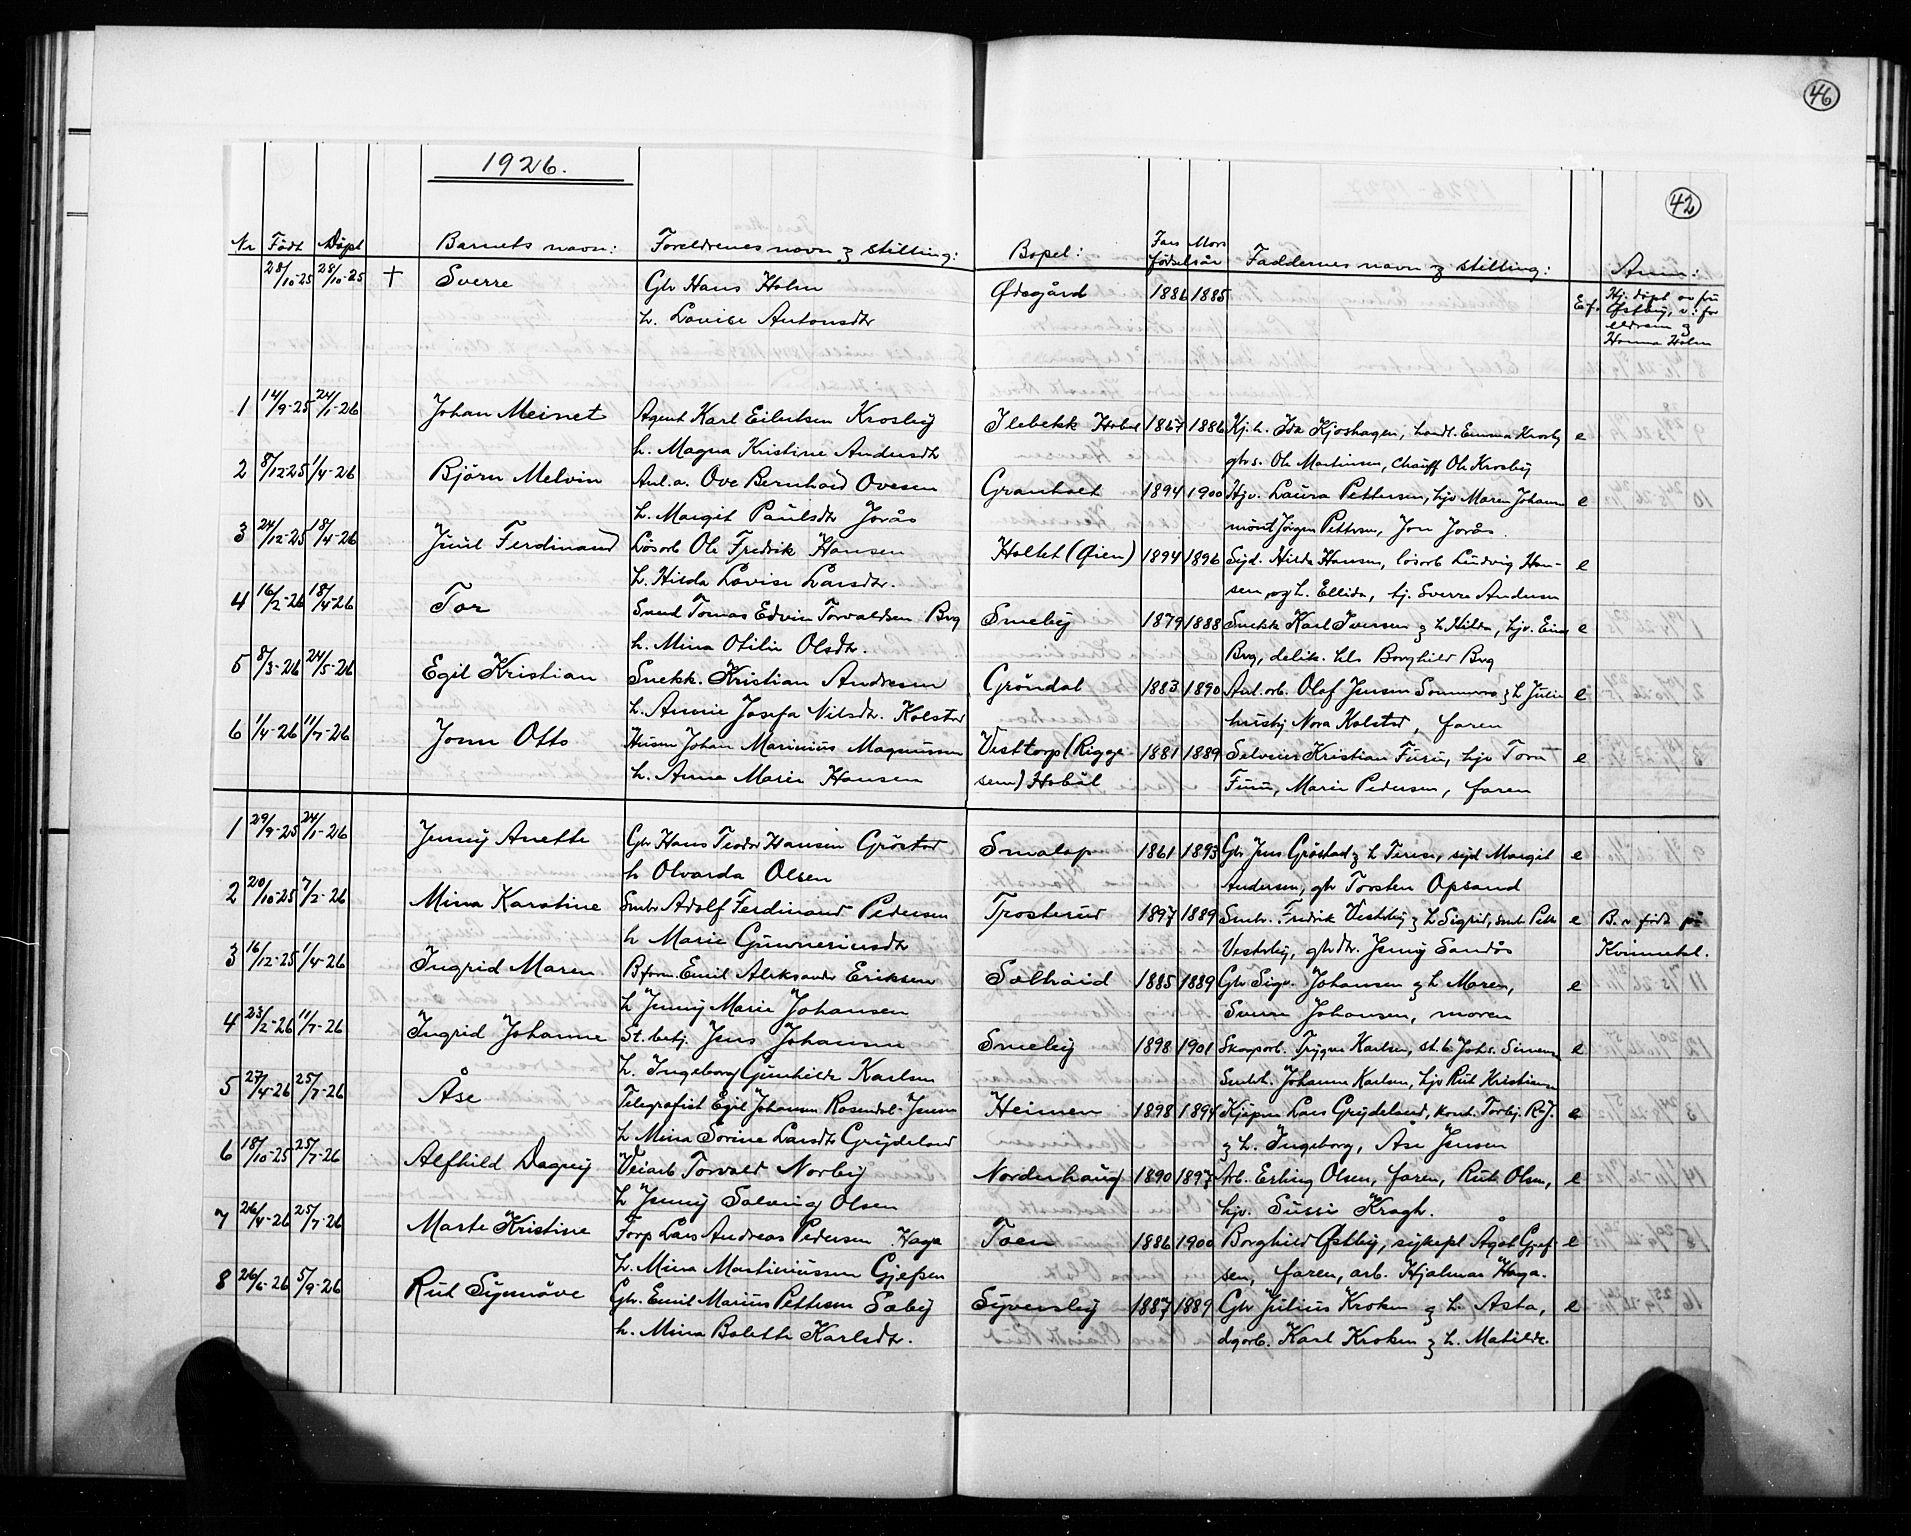 46
1926.
42
Nr Født Døpt Barnets navn: Foreldrenes navn og stilling: Bopel: Fars Mors fødselsår Faddernes navn og stilling: Anm:
28/10-25 28/10-25 + Sverre Gbr Hans Holm Ødegård 1886 1885 E.f. Hj. døpt av fru
h. Lovise Antonsdtr Østby, v. for
eldrene og
Hanna Holm
1 14/9-25 24/1-26 Johan Meinet Agent Karl Eilertsen Krosby Ilebekk Hobøl 1867 1886 Kj. h. Ida Kjoshagen, handl. Emma Krosby e
h. Magna Kristine Andersdtr gbrs. Ole Martinsen, chauff Ole Krosby
2 8/12 25 1/4-26 Bjørn Melvin Anl. a. Ove Bernhard Ovesen Granholt 1894 1900 Hjv. Laura Pettersen, hjv Maren Johann e
h. Margit Paulsdtr Jorås mont Jørgen Pettersen, Jon Jorås
3 24/12-25 18/4-26 Juul Ferdinand Løsarb Ole Fredrik Hansen Holtet (Øien) 1894 1896 Syd. Hilda Hansen, løsarb Ludvig Han- e
h. Hilda Lovise Larsdtr. sen og h. Ellida, tj. Sverre Andersen
4 16/2-26 18/4-26 Tor Smed Tomas Edvin Torvaldsen Berg Smeby 1879 1888 Snekk Karl Iversen og h Hilda, hjv. Eina e
h. Mina Otilie Olsdtr. Berg, delik. hls Borghild Berg
5 8/3-26 24/5-26 Egil Kristian Snekk. Kristian Andresen Grøndal 1883 1890 Anl. arb. Olaf Jensen Sommero og h Julie e
h. Annie Josefa Nilsdtr. Kolstad husbj Nora Kolstad, faren
6 1/4-26 11/7-26 Jonn Otto Husm Johan Marinius Magnussen Vesttorp (Rigge 1881 1889 Selveier Kristian Furu, hjv Tora e
h. Anna Marie Hansen sem) Hobøl Furu, Marie Pedersen, faren
1 29/9-25 24/1-26 Jenny Anette Gbr Hans Teodor Hansen Grøstad Smalap 1861 1893 Gbr Jens Grøstad og h Terese, syd Margit e
h Olvarda Olsen Andersen, gbr Torsten Opsand
2 20/10-25 7/2-26 Mina Karstine Smbr Adolf Ferdinand Pedersen Trosterud 1897 1889 Smbr. Fredrik Vestvby og h Sigrid, smbr Petter e B. er født på
h Marie Gunneriusdtr Vestvby, gbrdtr. Jenny Sandås Kvinnekl.
3 16/12-25 1/4-26 Ingrid Maren Bform. Emil Aleksander Eriksen Solhaid 1885 1889 Gbr Sigv. Johansen og h Maren, e
h Jenny Marie Johansen Sverre Johansen, moren
4 23/2-26 11/7-26 Ingrid Johanne St. betj. Jens Johansen Smeby 1898 1901 Skoparb. Trygve Karlsen, st. b. Johs. Simensen e
h. Ingeborg Gunhilde Karlsen Smbrh. Johanne Karlsen, hjv Rut Kristiansen
5 27/4-26 25/7-26 Åse Telegrafist Egil Johannes Rosendal-Jensen Heimen 1898 1894 Kjøpm Lars Grydeland, kont. Torbj. R.J. e
h Mina Sorine Larsdtr Grydeland og h. Ingeborg, Åse Jensen
6 18/10-25 25/7-26 Alfhild Dagny Veiarb Torvald Norby Norderhaug 1890 1897 Arb. Erling Olsen, faren, Rut Olsen, e
h Jenny Solveig Olsen hjv. Sussi Kragh.
7 26/4-26 25/7-26 Marte Kristine Forp Lars Andreas Pedersen Haga Toen 1886 1900 Borghild Østby, sykepl Ågot Gjef- e
h. Mina Martiniussen Gjefsen sen, faren, arb. Hjalmar Haga.
8 26/6-26 5/9-26 Rut Synnøve Gbr. Emil Marius Pettersen Sæby Syversby 1887 1889 Gbr Julius Kroken og h. Asta, e
h. Mina Bolette Karlsdtr. dgarb. Karl Kroken og h. Matilde.